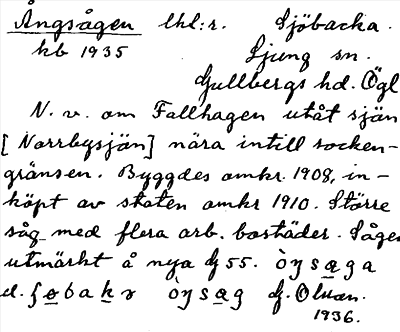 Ångsågen lhl:r. Sjöbacka.
kb 1935 Ljung sn.
Gullbergs hd. Ögl
N. v. om Fallhagen utåt sjön
[Norrbysjön] nära intill socken-
gränsen. Byggdes omkr. 1908, in-
köpt av staten omkr 1910. Större
såg med flera arb. bostäder. Sågen
utmärkt å nya G 55.
el.
1936.